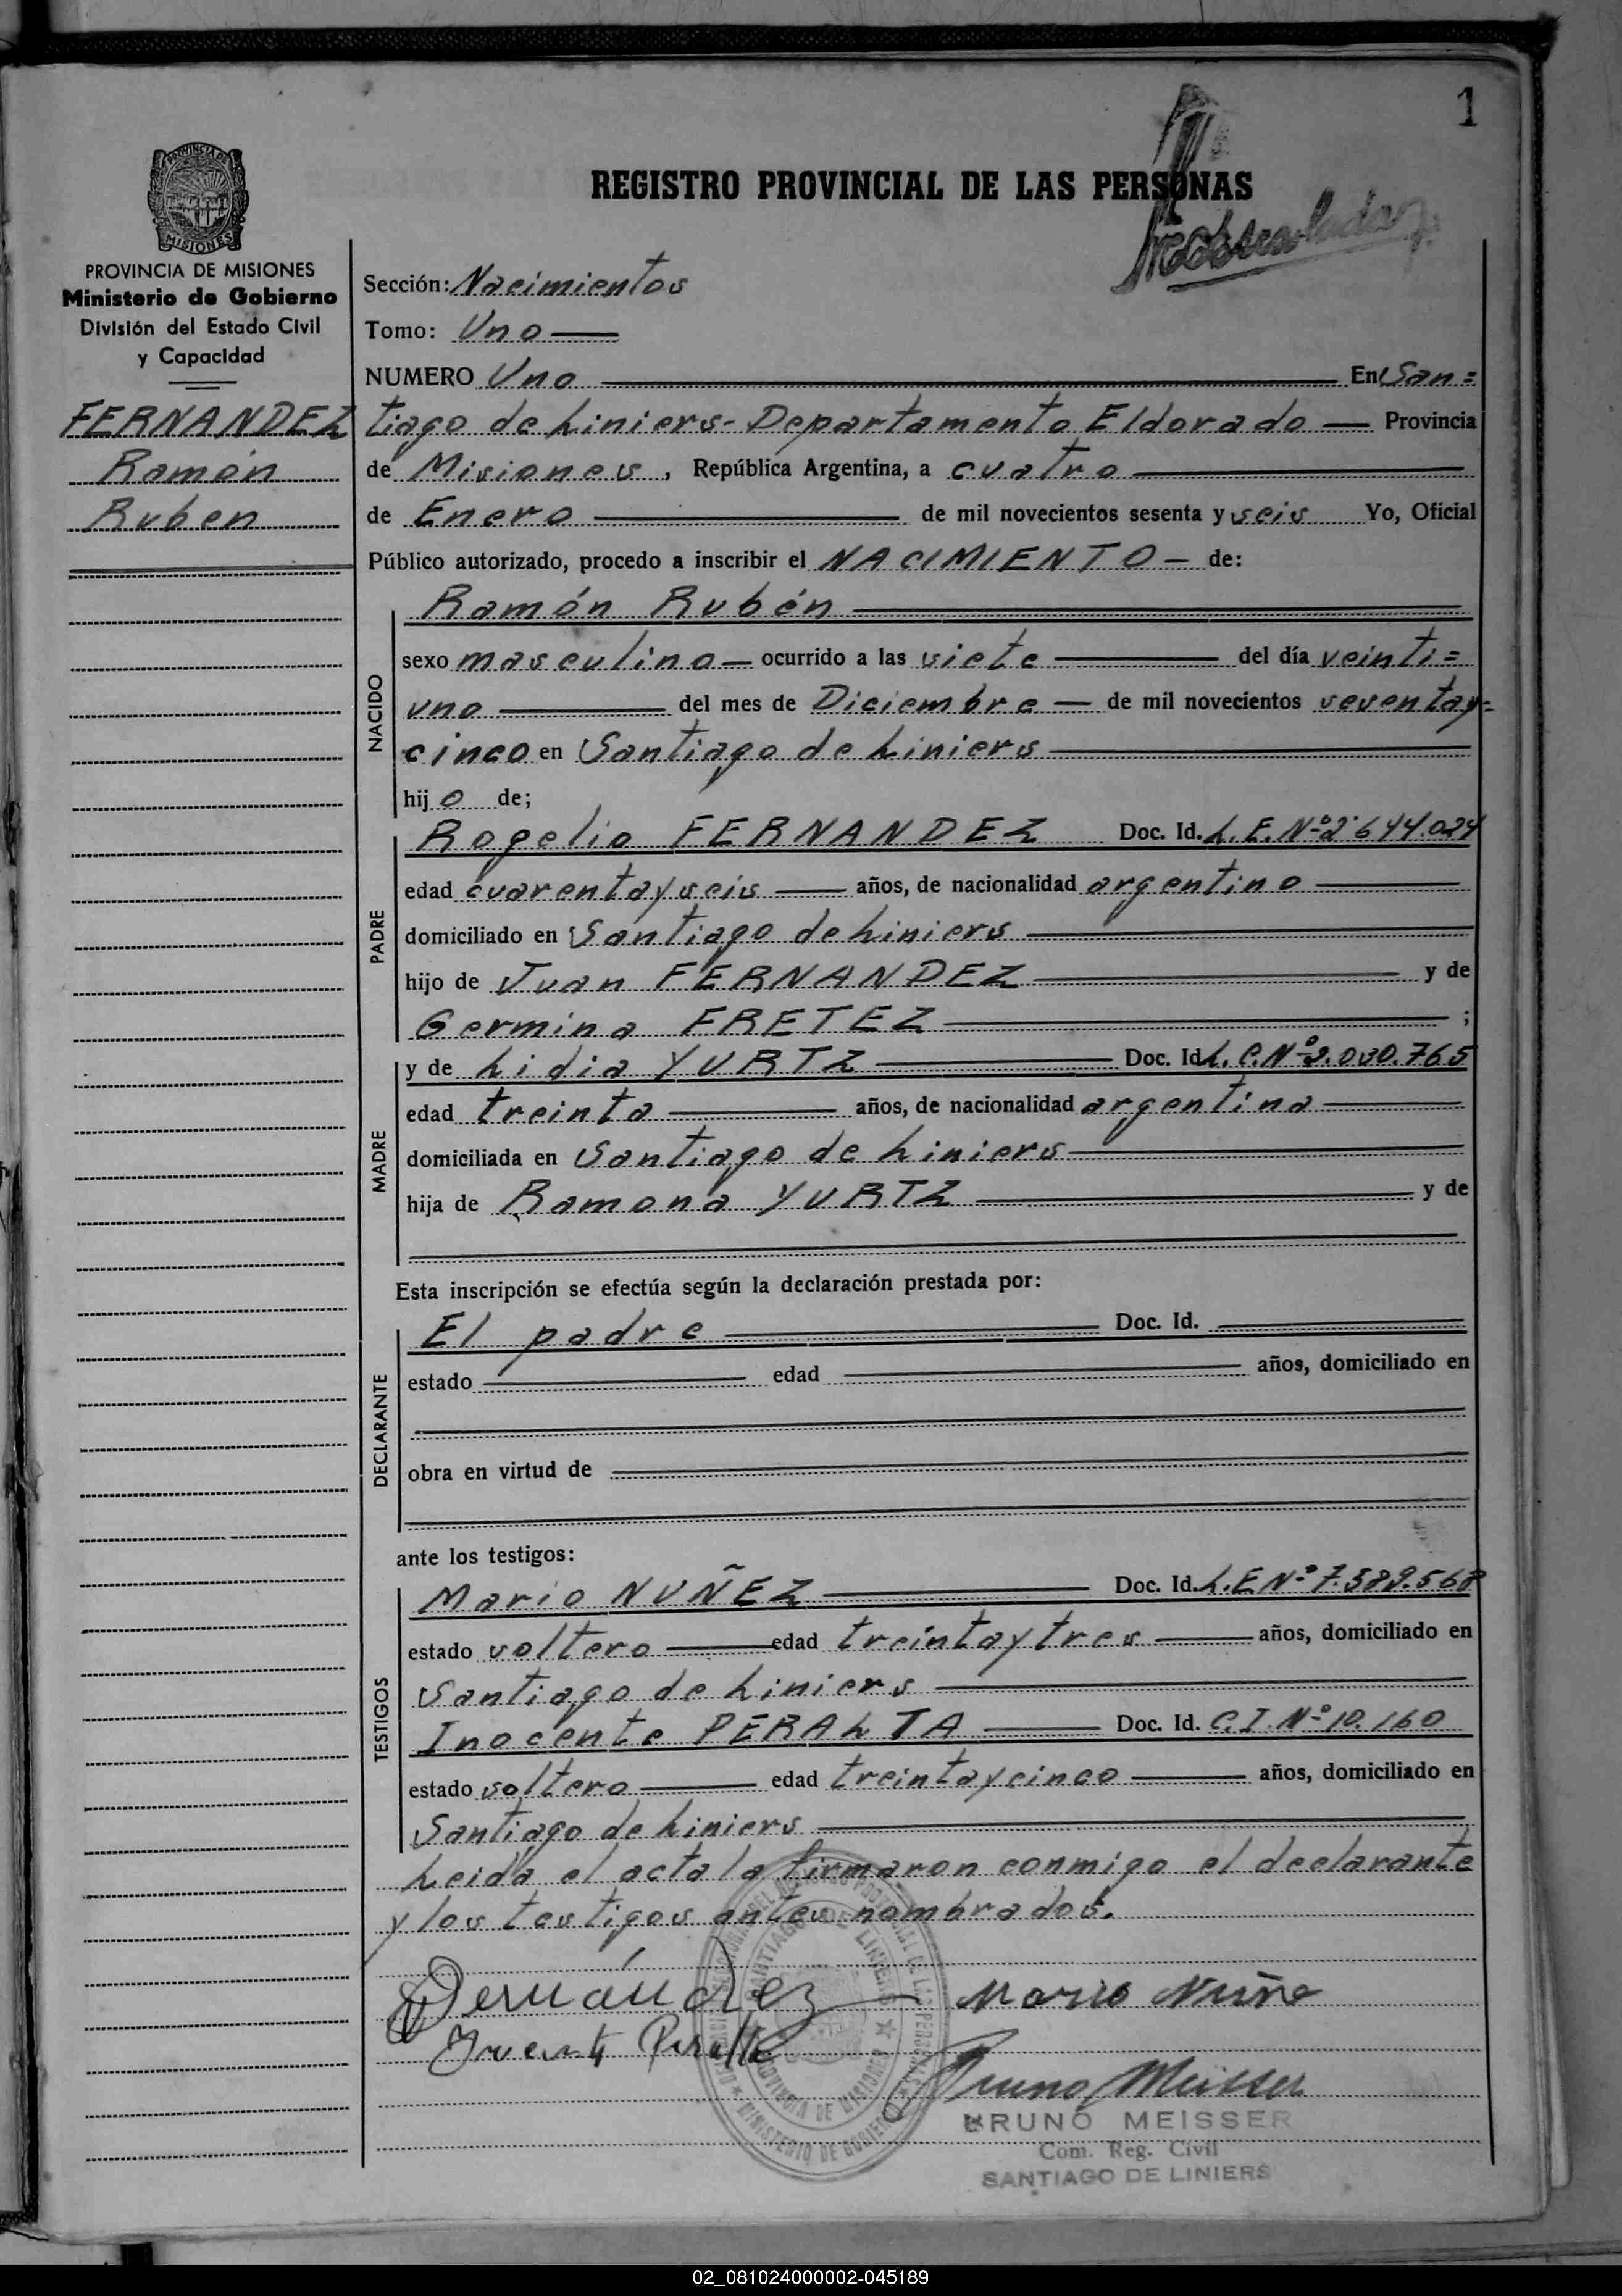 1
REGISTRO PROVINCIAL DE LAS PERSONAS
PROVINCIA DE MISIONES
Ministerio de Gobierno
División del Estado Civil
y Capacidad
FERNANDEZ
Ramón
Ruben
Sección: Nacimientos
Tomo: Uno
NUMERO Uno En San=
tiago de Liniers- Departamento Eldorado — Provincia
de Misiones, República Argentina, a cuatro
de Enero de mil novecientos sesenta y seis Yo, Oficial
Público autorizado, procedo a inscribir el NACIMIENTO — de:
Ramón Rubén
NACIDO
sexo masculino — ocurrido a las siete del día veinti=
uno del mes de Diciembre — de mil novecientos sesentay=
cinco en Santiago de Liniers
hijo de;
PADRE
Rogelio FERNANDEZ Doc. Id. L.E.Nº2.644.024
edad cuarentayseis años, de nacionalidad argentino
domiciliado en Santiago de Liniers
hijo de Juan FERNANDEZ y de
Germina FRETEZ ;
MADRE
y de Lidia YURTZ Doc. Id. L.C.Nº2.030.765
edad treinta años, de nacionalidad argentina
domiciliada en Santiago de Liniers
hija de Ramona YURTZ y de
Esta inscripción se efectúa según la declaración prestada por:
DECLARANTE
El padre Doc. Id.
estado edad años, domiciliado en
obra en virtud de
ante los testigos:
TESTIGOS
Mario NUÑEZ Doc. Id. L.E Nº 7.589.568
estado soltero edad treintaytres años, domiciliado en
Santiago de Liniers
Inocente PERALTA Doc. Id. C.I. Nº 10.160
estado soltero edad treintaycinco años, domiciliado en
Santiago de Liniers
Leida el acta la firmaron conmigo el declarante
y los testigos antes nombrados.
Mario Nuñe
Bruno Meisser
BRUNO MEISSER
Com. Reg. Civil
SANTIAGO DE LINIERS
02_081024000002-045189